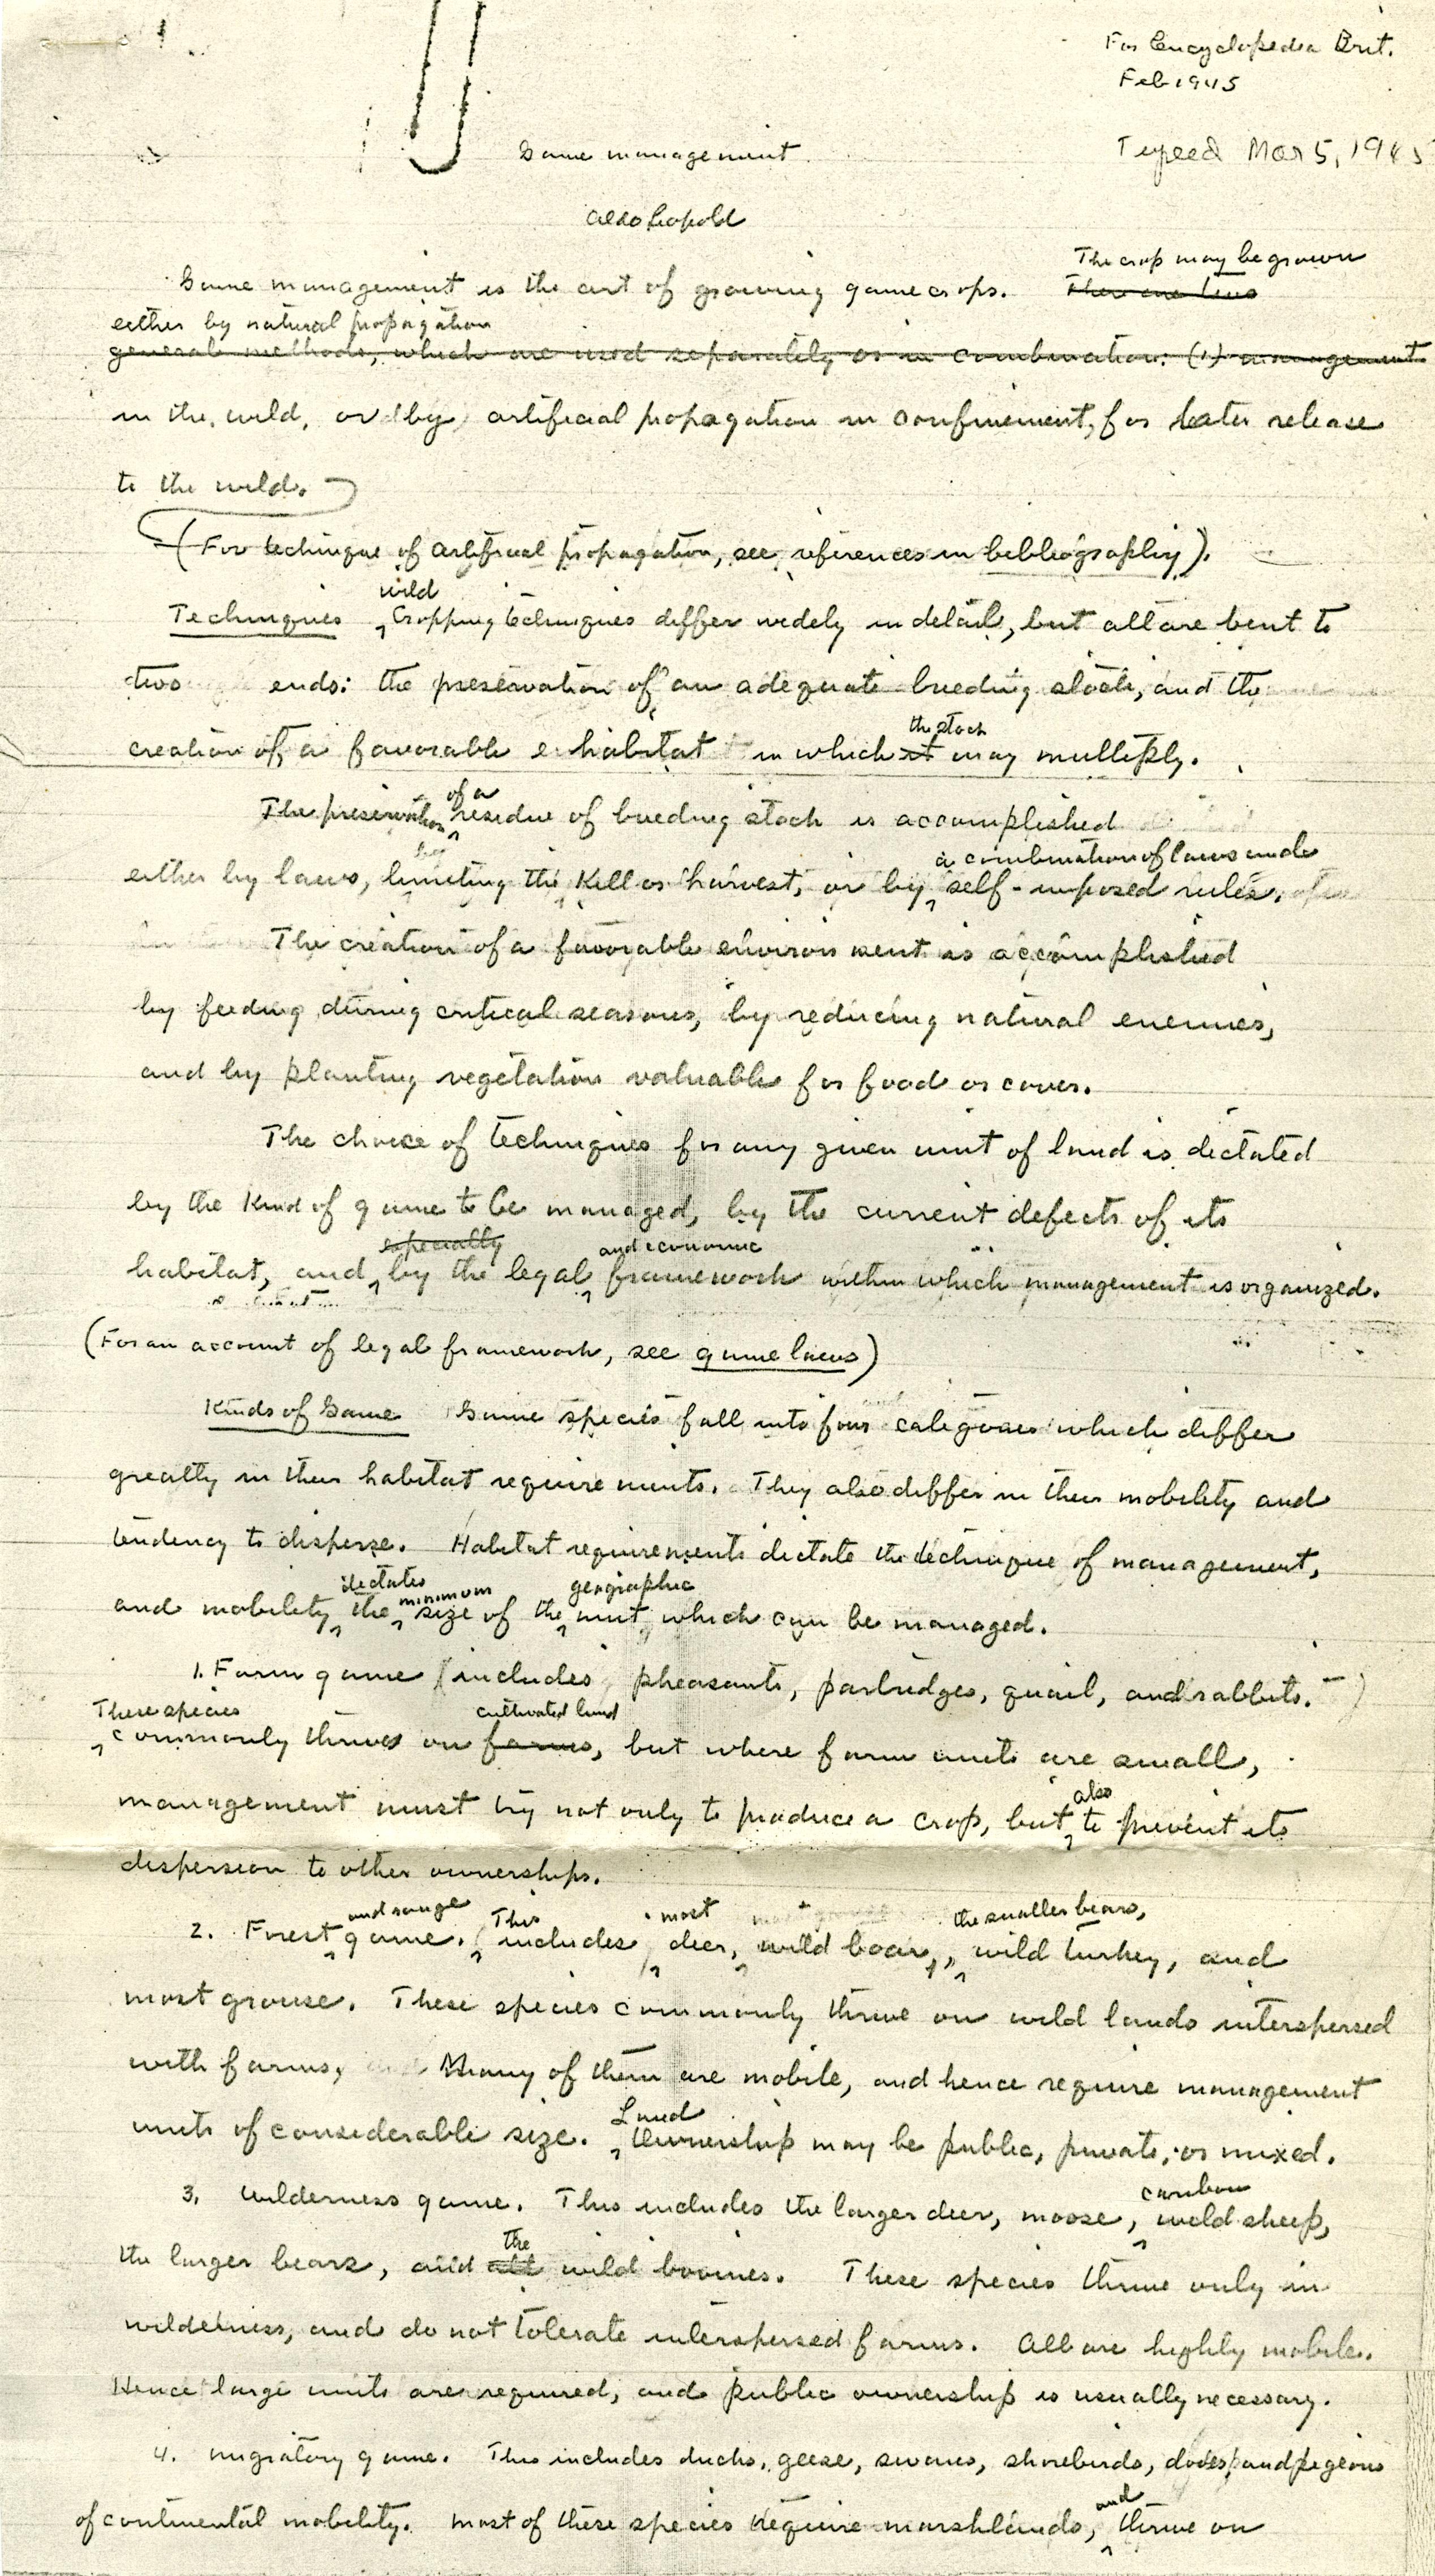 For Encyclopedia Brit.
Feb 1945
Typed Mar 5, 1945
Game management
Aldo Leopold
The crop may be grown
Game management is the art of growing game crops. There are two
either by natural propagation
general methods, which are used separately or in combination: (1) management
in the wild, or by artificial propagation in confinement, for later release
to the wild.
(For technique of artificial propagation, see references in bibliography).
wild
Techniques Cropping techniques differ widely in detail, but all are bent to
two ends: the preservation of an adequate breeding stock, and the
the stock
creation of a favorable habitat in which it may multiply.
of a
The preservation residue of breeding stock is accomplished
a combination of laws and
either by laws, limiting the kill or harvest, or by self-imposed rules.
The creation of a favorable environment is accomplished
by feeding during critical seasons, by reducing natural enemies,
and by planting vegetation valuable for food or cover.
The choice of techniques for any given unit of land is dictated
by the kind of game to be managed, by the current defects of its
especially and economic
habitat, and by the legal framework within which management is organized.
(For an account of legal framework, see game laws)
Kinds of Game Game species fall into four categories which differ
greatly in their habitat requirements. They also differ in their mobility and
tendency to disperse. Habitat requirements dictate the technique of management,
dictates minimum geographic
and mobility the size of the unit which can be managed.
1. Farm game (includes pheasants, partridges, quail, and rabbits.)
These species cultivated land
commonly thrives on farms, but where farm units are small,
also
management must try not only to produce a crop, but to prevent its
dispersion to other ownerships.
and range This most the smaller bears,
2. Forest game. includes deer, wild boar, wild turkey, and
most grouse. These species commonly thrive on wild lands interspersed
with farms, Many of them are mobile, and hence require management
Land
units of considerable size. Ownership may be public, private, or mixed.
caribou
3. Wilderness game. This includes the larger deer, moose, wild sheep,
the
the larger bears, and all wild bovines. These species thrive only in
wilderness, and do not tolerate interspersed farms. All are highly mobile.
Hence large units are required, and public ownership is usually necessary.
4. Migratory game. This includes ducks, geese, swans, shorebirds, doves, and pigeons
and
of continental mobility. Most of these species require marshlands, thrive on